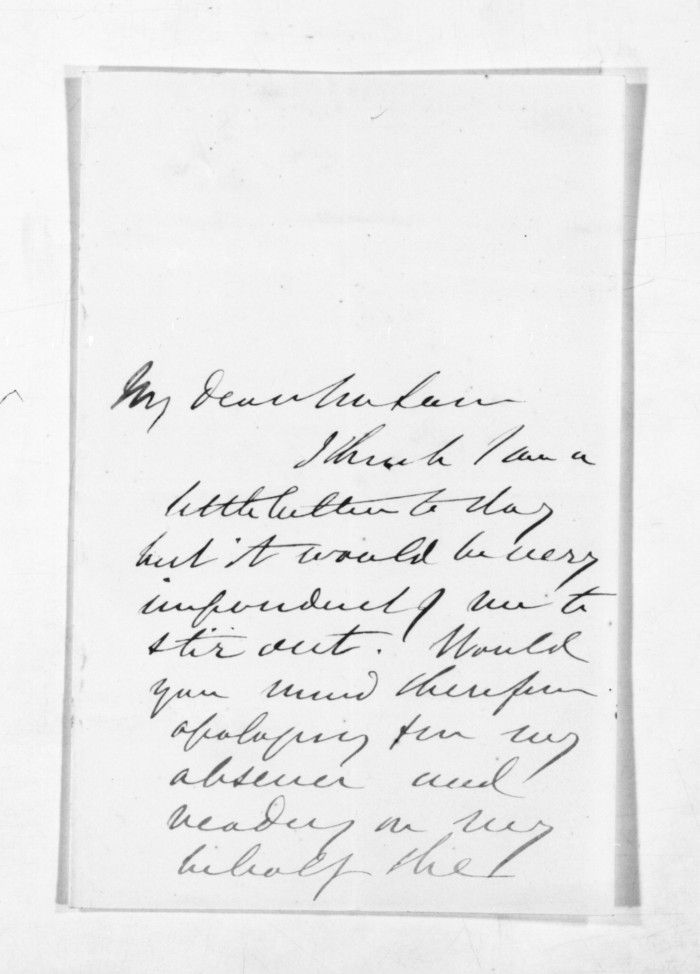 My dear McLean
I think I am a
little better to day
but it would be very
imprudent of me to
stir out. Would
you mind therefore
apologising for my
absence and
reading on my
behalf the